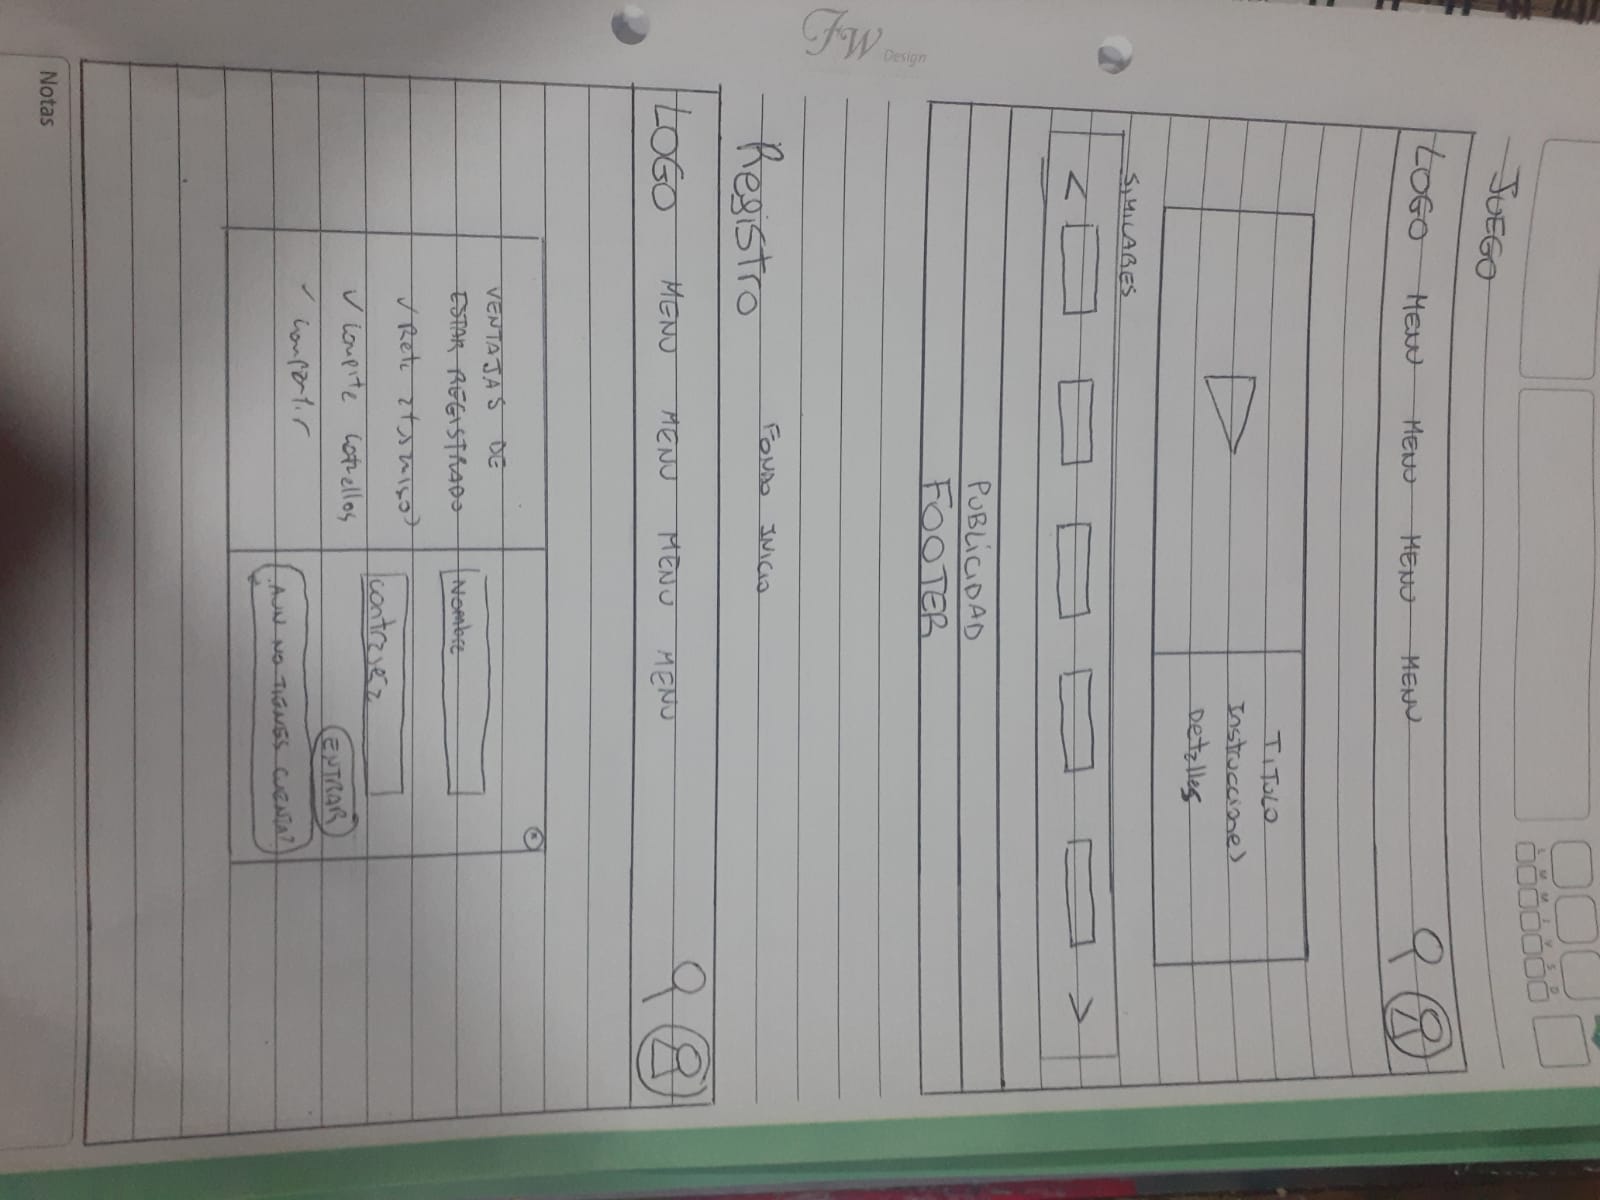 L M M J V S D
JUEGO
LOGO MENU MENU MENU MENU
TITULO
Instrucciones
Detalles
SIMILARES
< >
PUBLICIDAD
FOOTER
FW Design
Registro FONDO INICIO
LOGO MENU MENU MENU MENU
VENTAJAS DE
ESTAR REGISTRADO
✓ Reta
✓ Compite
✓ Compartir
Nombre
contraseña
ENTRAR
AUN NO TIENES CUENTA?
Notas